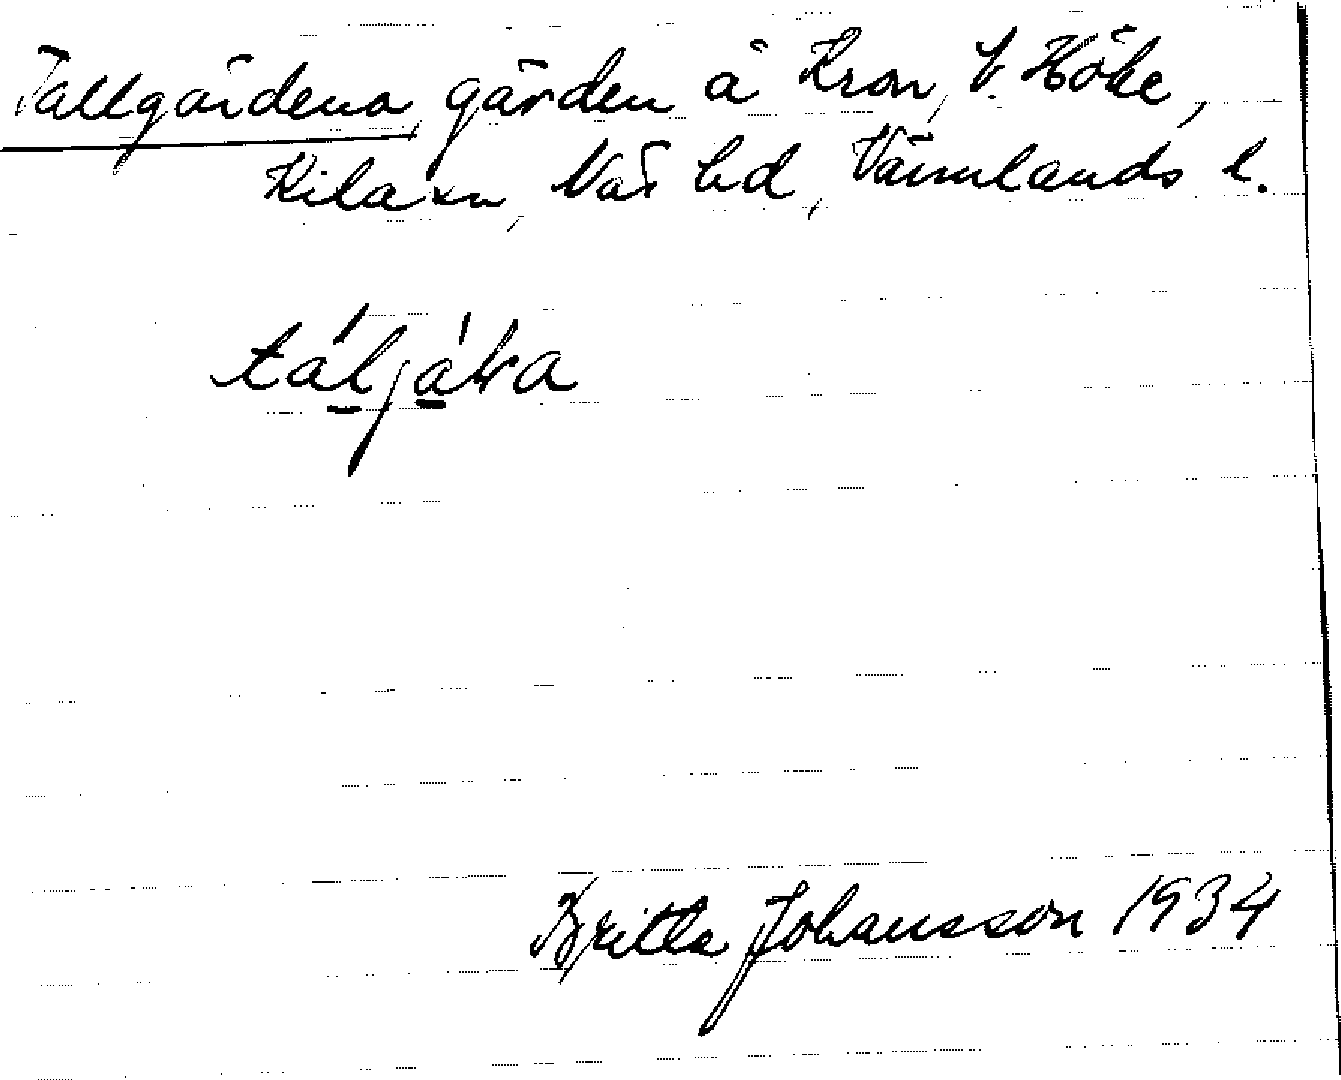 Tallgårdena, gården å Kron, V. Höke,
Kila sn, Näs hd, Värmlands l.
Britta Johansson 1934